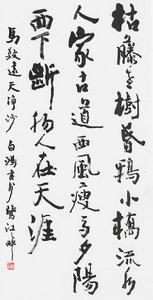 枯藤老樹昏鴉小橋流水
人家古道西風瘦馬夕陽
西下斷腸人在天涯
馬致遠天淨沙 書鷺江畔